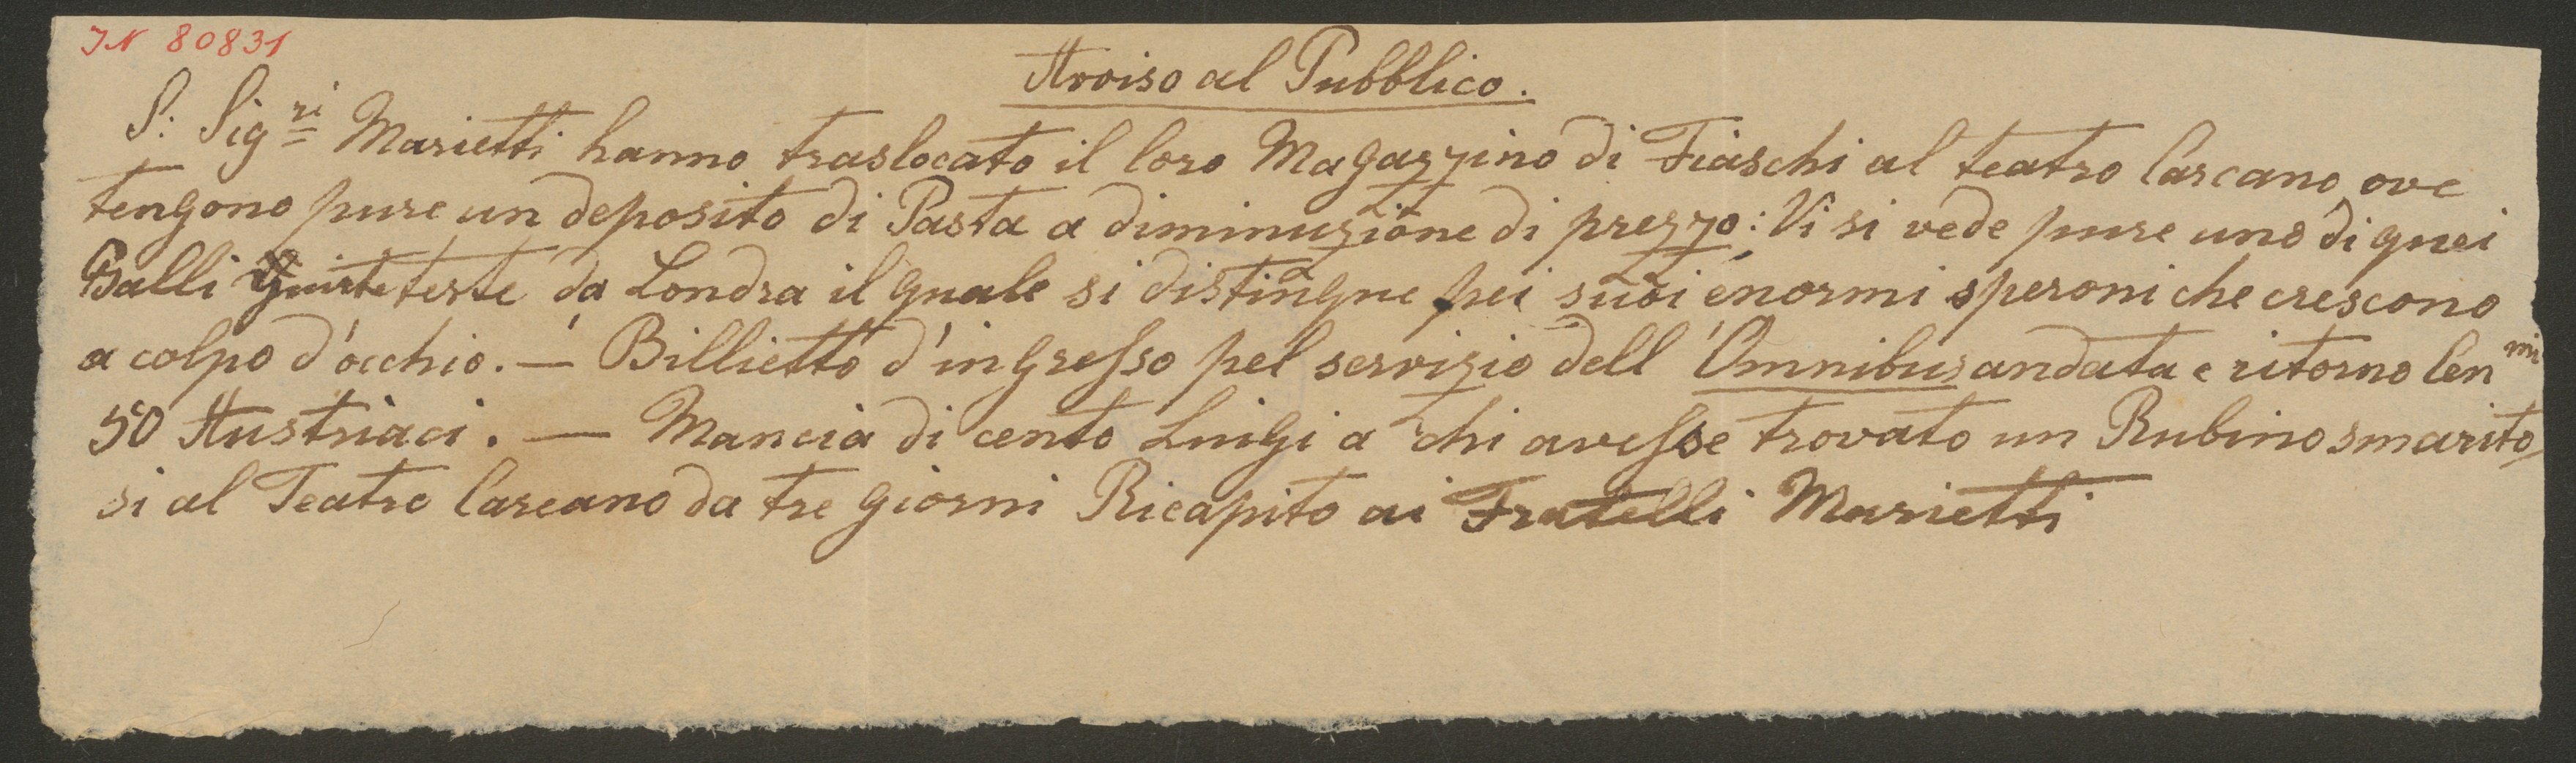 IN 80831
Avviso al Pubblico.
S: Sig.ri Marietti hanno traslocato il loro Magazzino di Fiaschi al teatro Carcano ove
tengono pure un deposito di Pasta a diminuzione di prezzo: Vi si vede pure uno di quei
Balli da Londra il quale si distingue pei suoi enormi speroni che crescono
a colpo d'occhio. — Billietto d'ingresso pel servizio dell'Omnibus andata e ritorno Cen.mi
50 Austriaci. — Mancia di cento Luigi a chi avesse trovato un Rubino smarito
si al Teatro Carcano da tre giorni Ricapito ai Fratelli Marietti